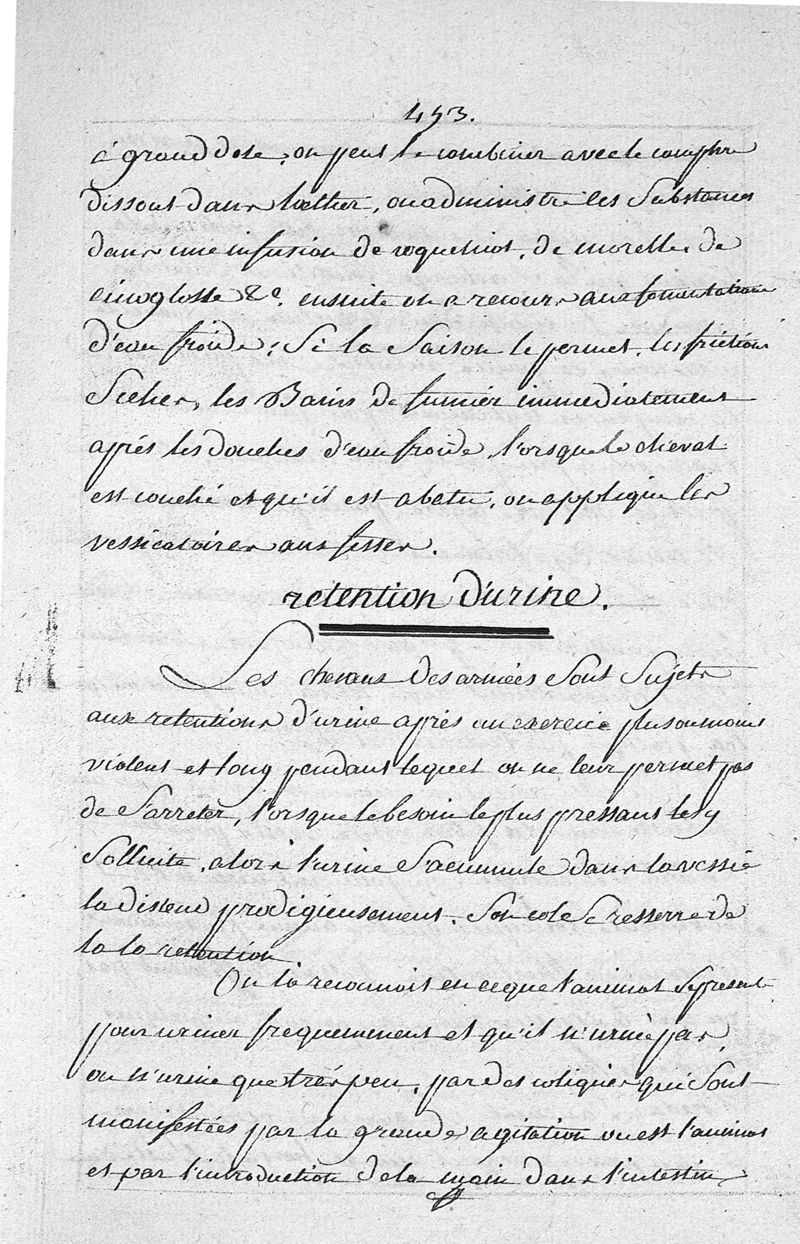 453.
à grand dose, on peut le combiner avec le camphre
dissout dans l'æther, on administre les Substances
dans une infusion de coquelicot, de morelle, de
cinoglosse &c. ensuite on a recours aux fomentations
d'eau froide, Si la Saison le permet, les frictions
Seches, les Bains de fumier immediatement
après les douches d'eau froide, l'orsque le cheval
est couché et qu'il est abatu, on applique les
vessicatoires aux fesses.
retention d'urine.
Les chevaux des armées Sont Sujets
aux retentions d'urine après un exercice plus ou moins
violent et long pendant lequel on ne leur permet pas
de S'arreter, l'orsque le besoin le plus pressant les y
Sollicite, alors l'urine S'acumule dans la vessie
la distend prodigieusement. Son cole Se resserre de
la la retention.
On la reconnoit en ce que l'animal Se presente
pour uriner frequemment et qu'il n'urine pas,
ou n'urine que très peu, par des coliques qui Sont
manifestées par la grande agitation ou est l'animal
et par l'introduction de la main dans l'intestin